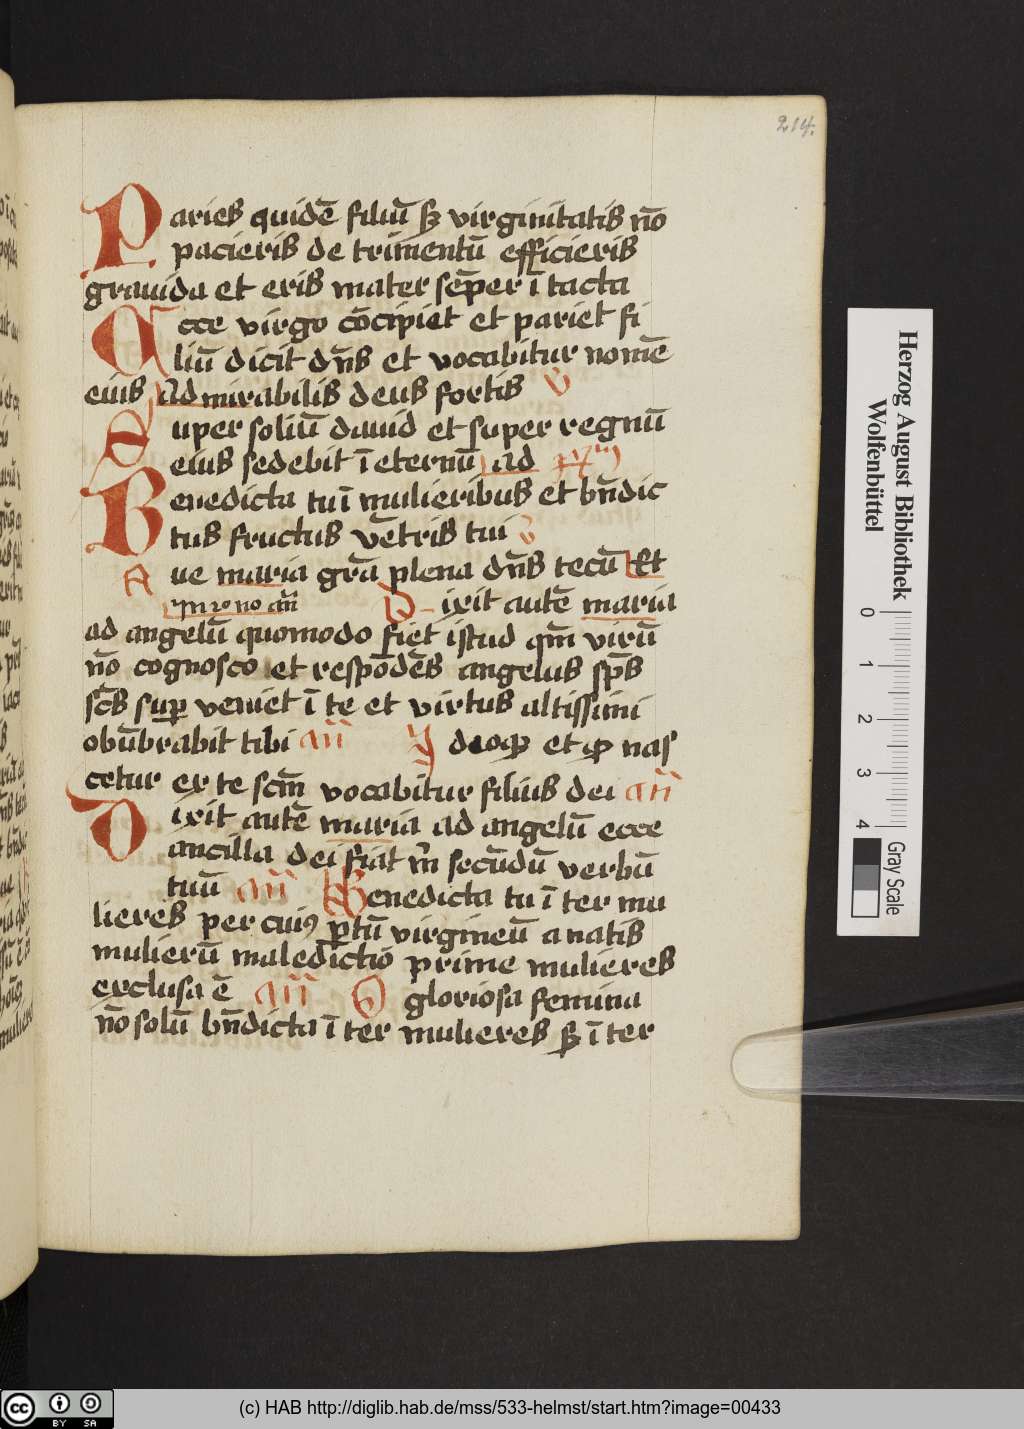 214.
Paries quidē filiū sꝫ virginitatis nō
pacieris de trimentū efficieris
grauida et eris mater sēper ī tacta
Ecce virgo cōcipiet et pariet fi
liū dicit dn̄s et vocabitur nomē
eius ad mirabilis deus fortis v
Super soliū dauid et super regnū
eius sedebit ī eternū ad
Benedicta tu ī mulieribus et bn̄dic
tus fructus vētris tui v
Aue maria gr̄a plena dn̄s tecū Et
no an̄ Dixit autē maria
ad angelū quomodo fiet istud qm̄ virū
nō cognosco et respōdēs angelus sp̄s
sc̄s suꝑ veniet ī te et virtus altissimi
obūbrabit tibi an̄ Ydeoqꝫ et qꝫ nas
cetur ex te scm̄ vocabitur filius dei an̄
Dixit autē maria ad angelū ecce
ancilla dei fiat m̄ secūdū verbū
tuū an̄ Benedicta tu ī ter mu
lieres per cuiꝰ ꝑtū virgineū a natis
mulierū maledictio prime mulieres
exclusa ē an̄ O gloriosa femina
nō solū bn̄dicta ī ter mulieres sꝫ ī ter
Herzog August Bibliothek
Wolfenbüttel
0 1 2 3 4
Gray Scale
cc BY SA
(c) HAB http://diglib.hab.de/mss/533-helmst/start.htm?image=00433